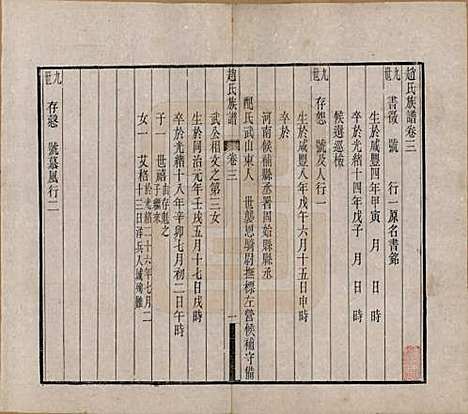 趙氏族譜卷三
九世
書徵 號 行一原名書銘
生於咸豐四年甲寅 月 日 時
卒於光緒十四年戊子 月 日 時
候選巡檢
九世
存恕 號及人行一
生於咸豐八年戊午六月十五日申時
卒於
河南候補縣丞署固始縣縣丞
配氏武山東人 世襲恩騎尉撫標左營候補守備
趙氏族譜 卷三 一
武公相文之第三女
生於同治元年壬戌五月十七日戌時
卒於光緒十八年辛卯七月初二日午時
子一 世禧 由存魁之子繼來
女一 艾格 於光緒二十六年七月二十三日洋兵入城殉難
九世
存慤 號慕風行二